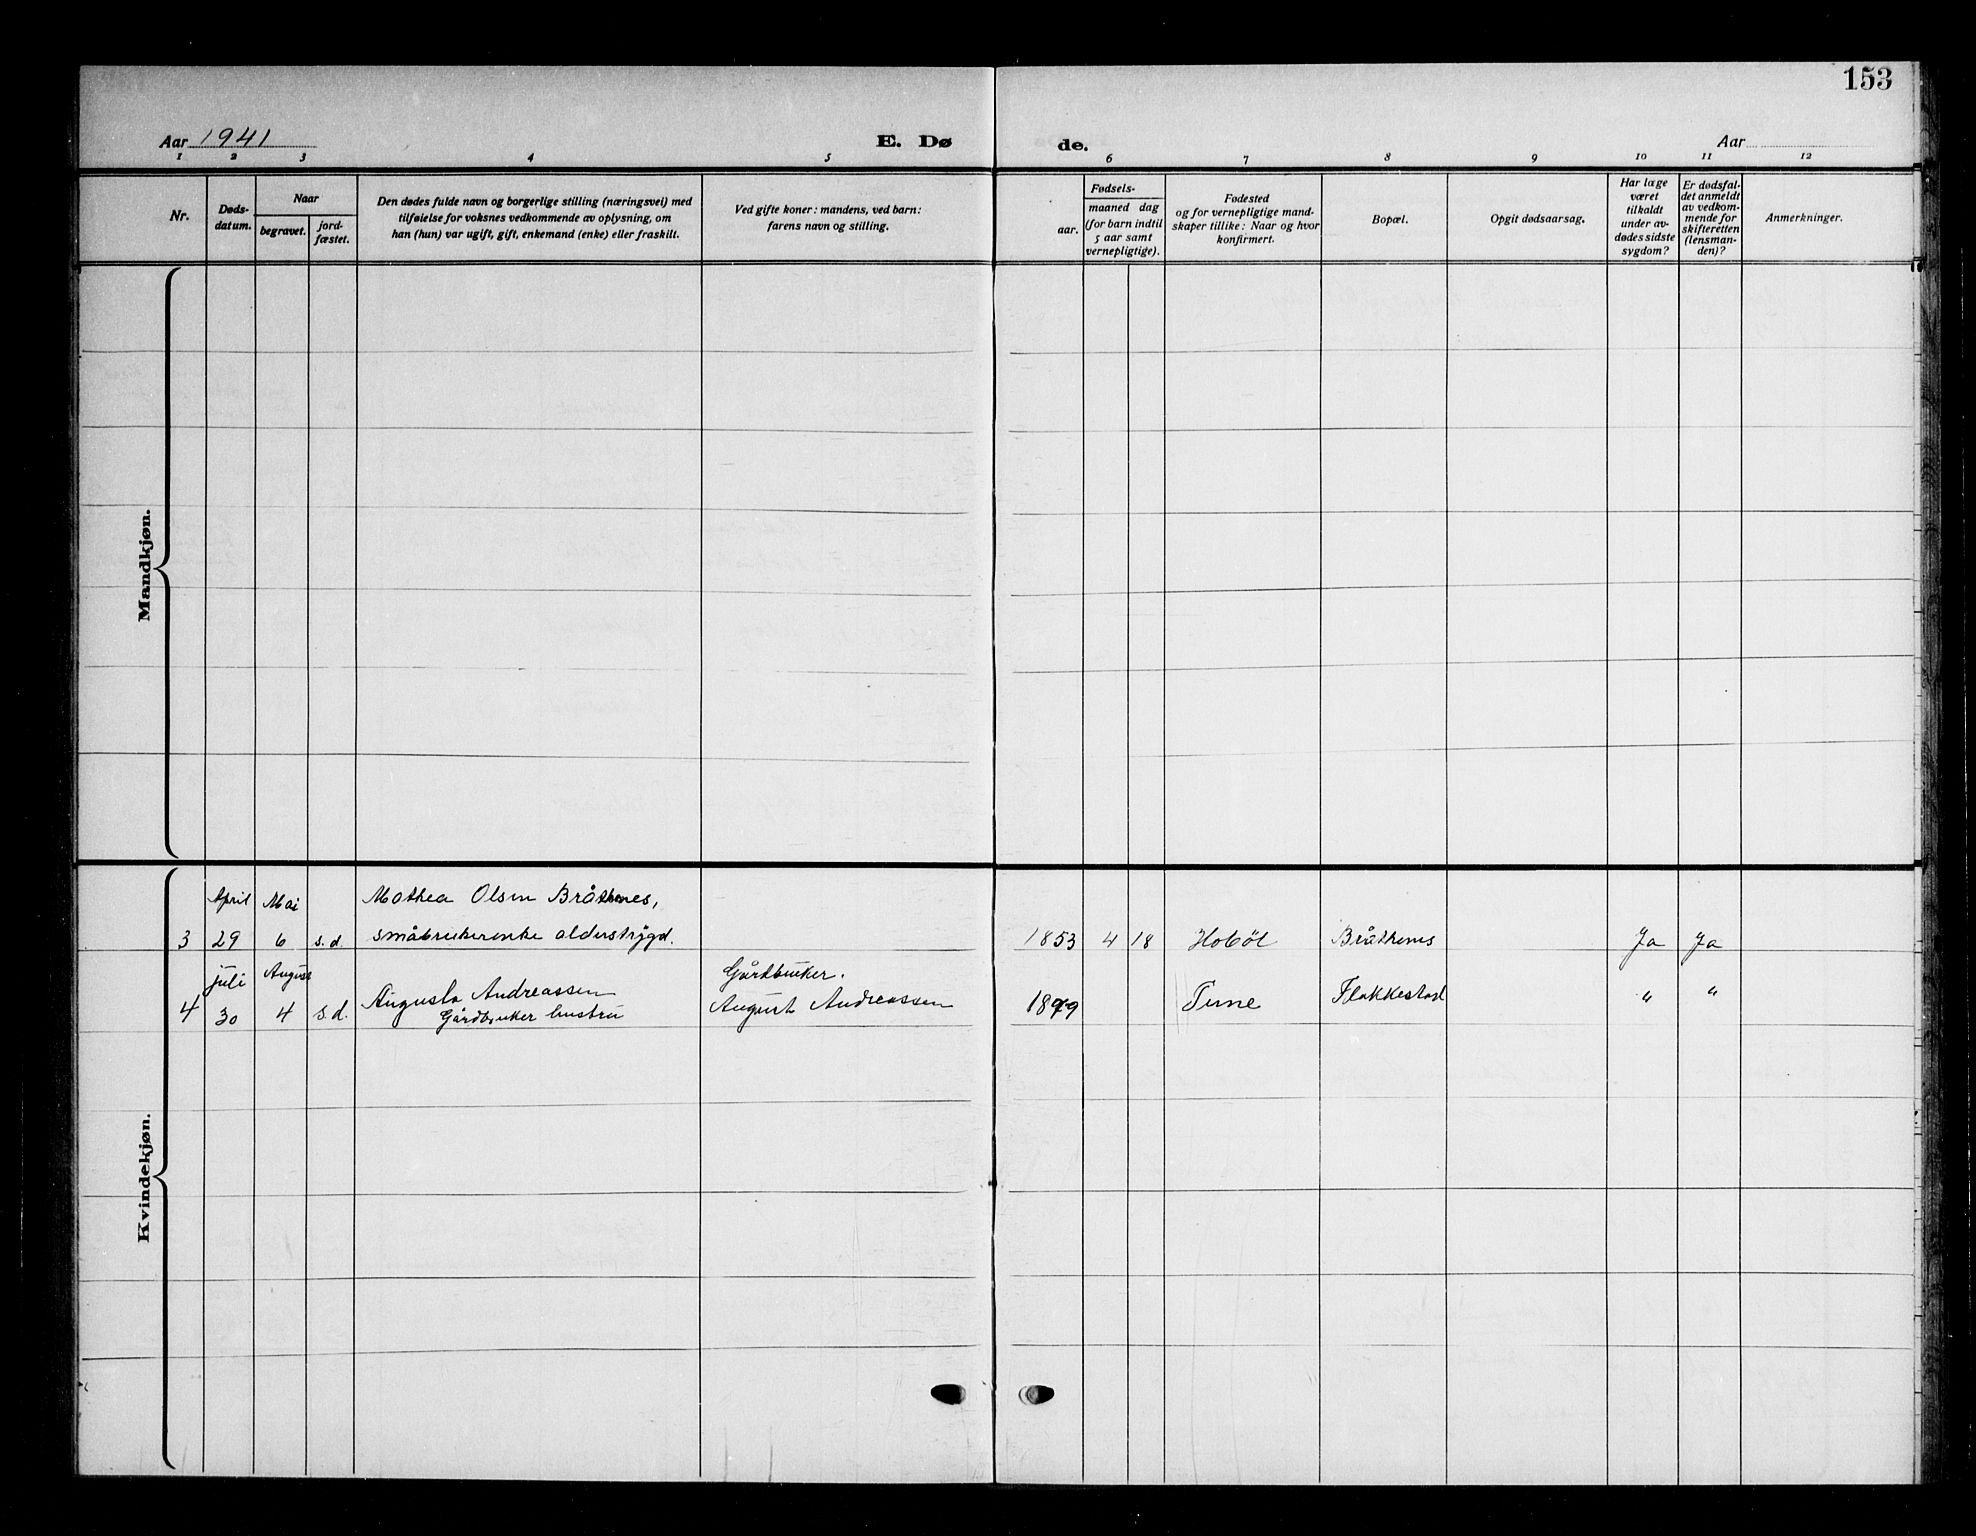 153
Aar 1941 E. Dø de. Aar
1 2 3 4 5 6 7 8 9 10 11 12
Nr.
Døds-
datum.
Naar
begravet.
jord-
fæstet.
Den dødes fulde navn og borgerlige stilling (næringsvei) med
tilføielse for voksnes vedkommende av oplysning, om
han (hun) var ugift, gift, enkemand (enke) eller fraskilt.
Ved gifte koner: mandens, ved barn:
farens navn og stilling.
aar.
Fødsels-
maaned dag
(for barn indtil
5 aar samt
vernepligtige).
Fødested
og for vernepligtige mand-
skaper tillike: Naar og hvor
konfirmert.
Bopæl.
Opgit dødsaarsag.
Har læge
været
tilkaldt
under av-
dødes sidste
sygdom?
Er dødsfal-
det anmeldt
av vedkom-
mende for
skifteretten
(lensman-
den)?
Anmerkninger.
Mandkjøn.
Kvindekjøn.
April Mai Mathea Olsen Bråthenes,
3 29 6 s.d. småbrukerenke alderstrygd. 1853 4 18 Hobøl Bråthenes Ja Ja
juli August Gårdbruker.
4 30 4 s.d. Augusta Andreassen August Andreassen Tune Flakkestad " "
Gårdbruker hustru